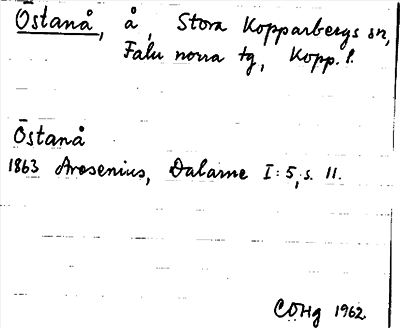 Östanå, å, Stora Kopparbergs sn,
Falu norra tg, Kopp. l.
Östanå
1863 Arosenius, Dalarne I:5, s. 11.
COHg 1962